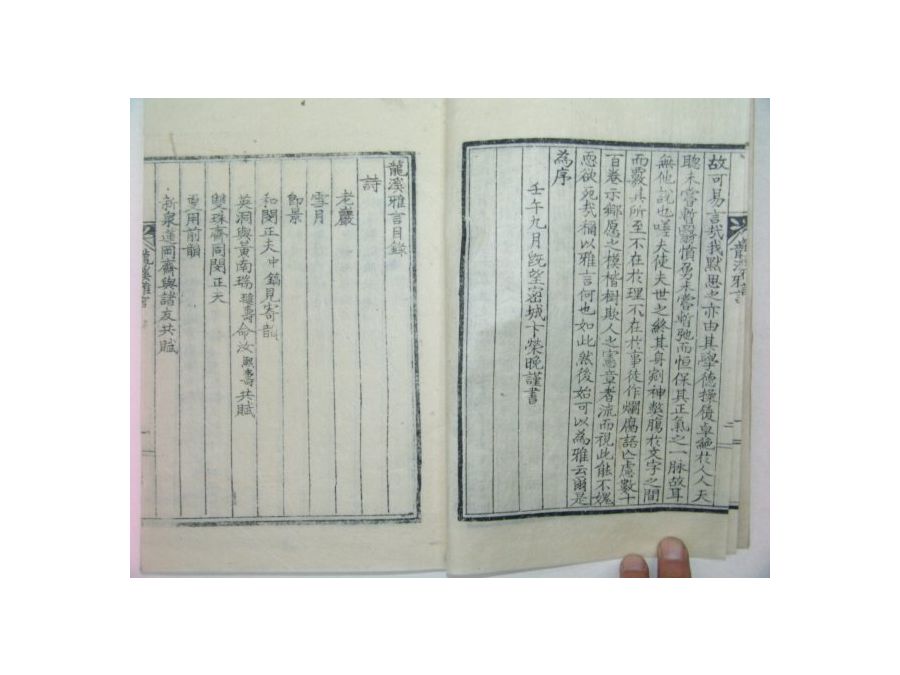 故可易言哉我默思之亦由其學德操優卓絶於人人天
聰未嘗暫翳憤勇未嘗暫弛而恒保其正氣之一脉故耳
無他說也嗟夫徒夫世之終其身劌神鏤腸於文字之間
而覈其所至不在於理不在於事徒作爛腐語亡慮數十
百卷示鄕愿之模楷樹欺人之憲章者流而視此能不愧
恧欲死哉稱以雅言何也如此然後始可以爲雅云爾是
為序
壬午九月旣望密城卞榮晩謹書
龍溪雅言目錄
詩
老巖
雪月
卽景
和閔正夫中鎬見寄韻
英洞與黃南瑞命汝共賦
雙珠齋同閔正夫
更用前韻
新泉蓬岡齋與諸友共賦
龍溪雅言